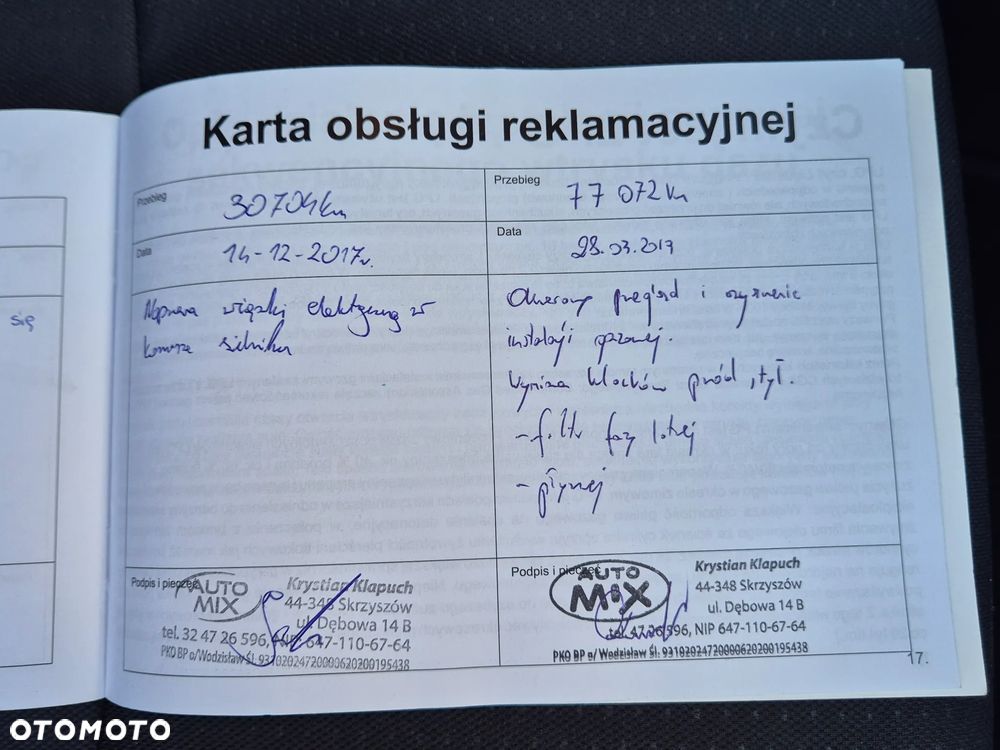 Karta obsługi reklamacyjnej
Przebieg
30704km
Przebieg
77 072km
Data
14-12-2017r.
Data
28.03.2017
Naprawa wiązki elektrycznej w
komorze silnika
Okresowy przegląd i czyszczenie
instalacji gazowej.
Wymiana klocków przód, tył.
- filtr fazy lotnej
- płynnej
Podpis i pieczęć
AUTO
MIX
Krystian Klapuch
44-348 Skrzyszów
ul. Dębowa 14 B
tel. 32 47 26 596, NIP 647-110-67-64
PKO BP o/Wodzisław Śl. 93102024720000620200195438
Podpis i pieczęć
AUTO
MIX
Krystian Klapuch
44-348 Skrzyszów
ul. Dębowa 14 B
tel. 47 26 596, NIP 647-110-67-64
PKO BP o/ Wodzisław Śl. 93102024720000620200195438
17.
się
OTOMOTO